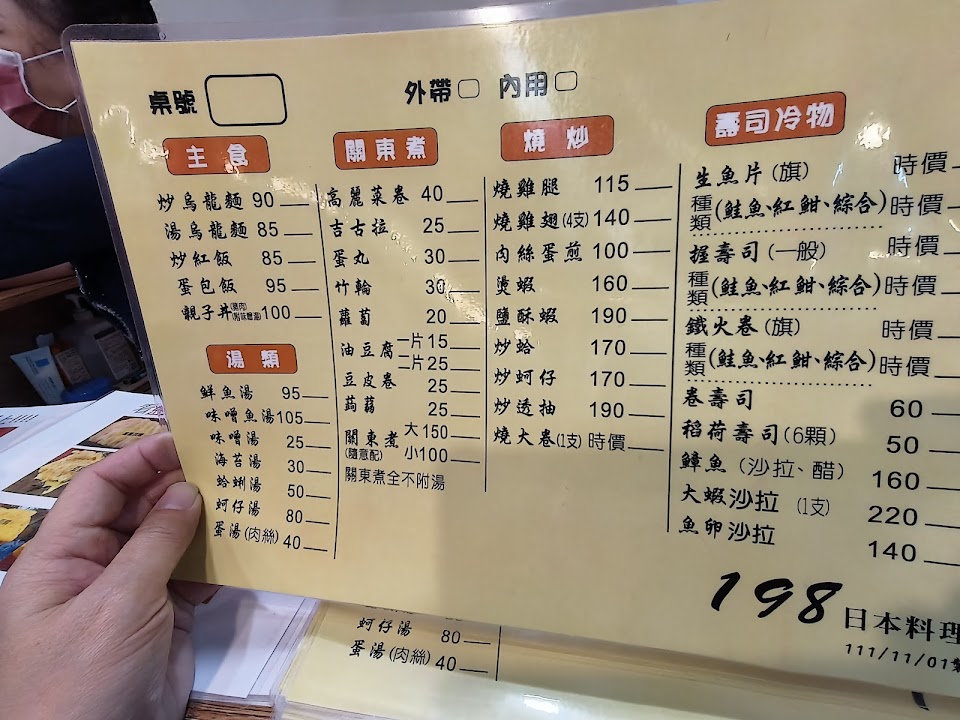 桌號
外帶 內用
主食
炒烏龍麵 90
湯烏龍麵 85
炒紅飯 85
蛋包飯 95
親子丼 100
湯類
鮮魚湯 95
味噌魚湯 105
味噌湯 25
海苔湯 30
蛤蜊湯 50
蚵仔湯 80
蛋湯(肉絲) 40
關東煮
高麗菜卷 40
吉古拉 25
蛋丸 30
竹輪 30
蘿蔔 20
油豆腐 一片 15
二片 25
豆皮卷 25
蒟蒻 25
關東煮 大 150
(隨意配) 小 100
關東煮全不附湯
燒炒
燒雞腿 115
燒雞翅(4支) 140
肉絲蛋煎 100
燙蝦 160
鹽酥蝦 190
炒蛤 170
炒蚵仔 170
炒透抽 190
燒大卷(1支) 時價
壽司冷物
生魚片(旗) 時價
種類(鮭魚、紅魽、綜合) 時價
握壽司(一般) 時價
種類(鮭魚、紅魽、綜合) 時價
鐵火卷(旗) 時價
種類(鮭魚、紅魽、綜合) 時價
卷壽司 60
稻荷壽司(6顆) 50
鱆魚(沙拉、醋) 160
大蝦沙拉(1支) 220
魚卵沙拉 140
198 日本料理
111/11/01
蚵仔湯 80
蛋湯(肉絲) 40